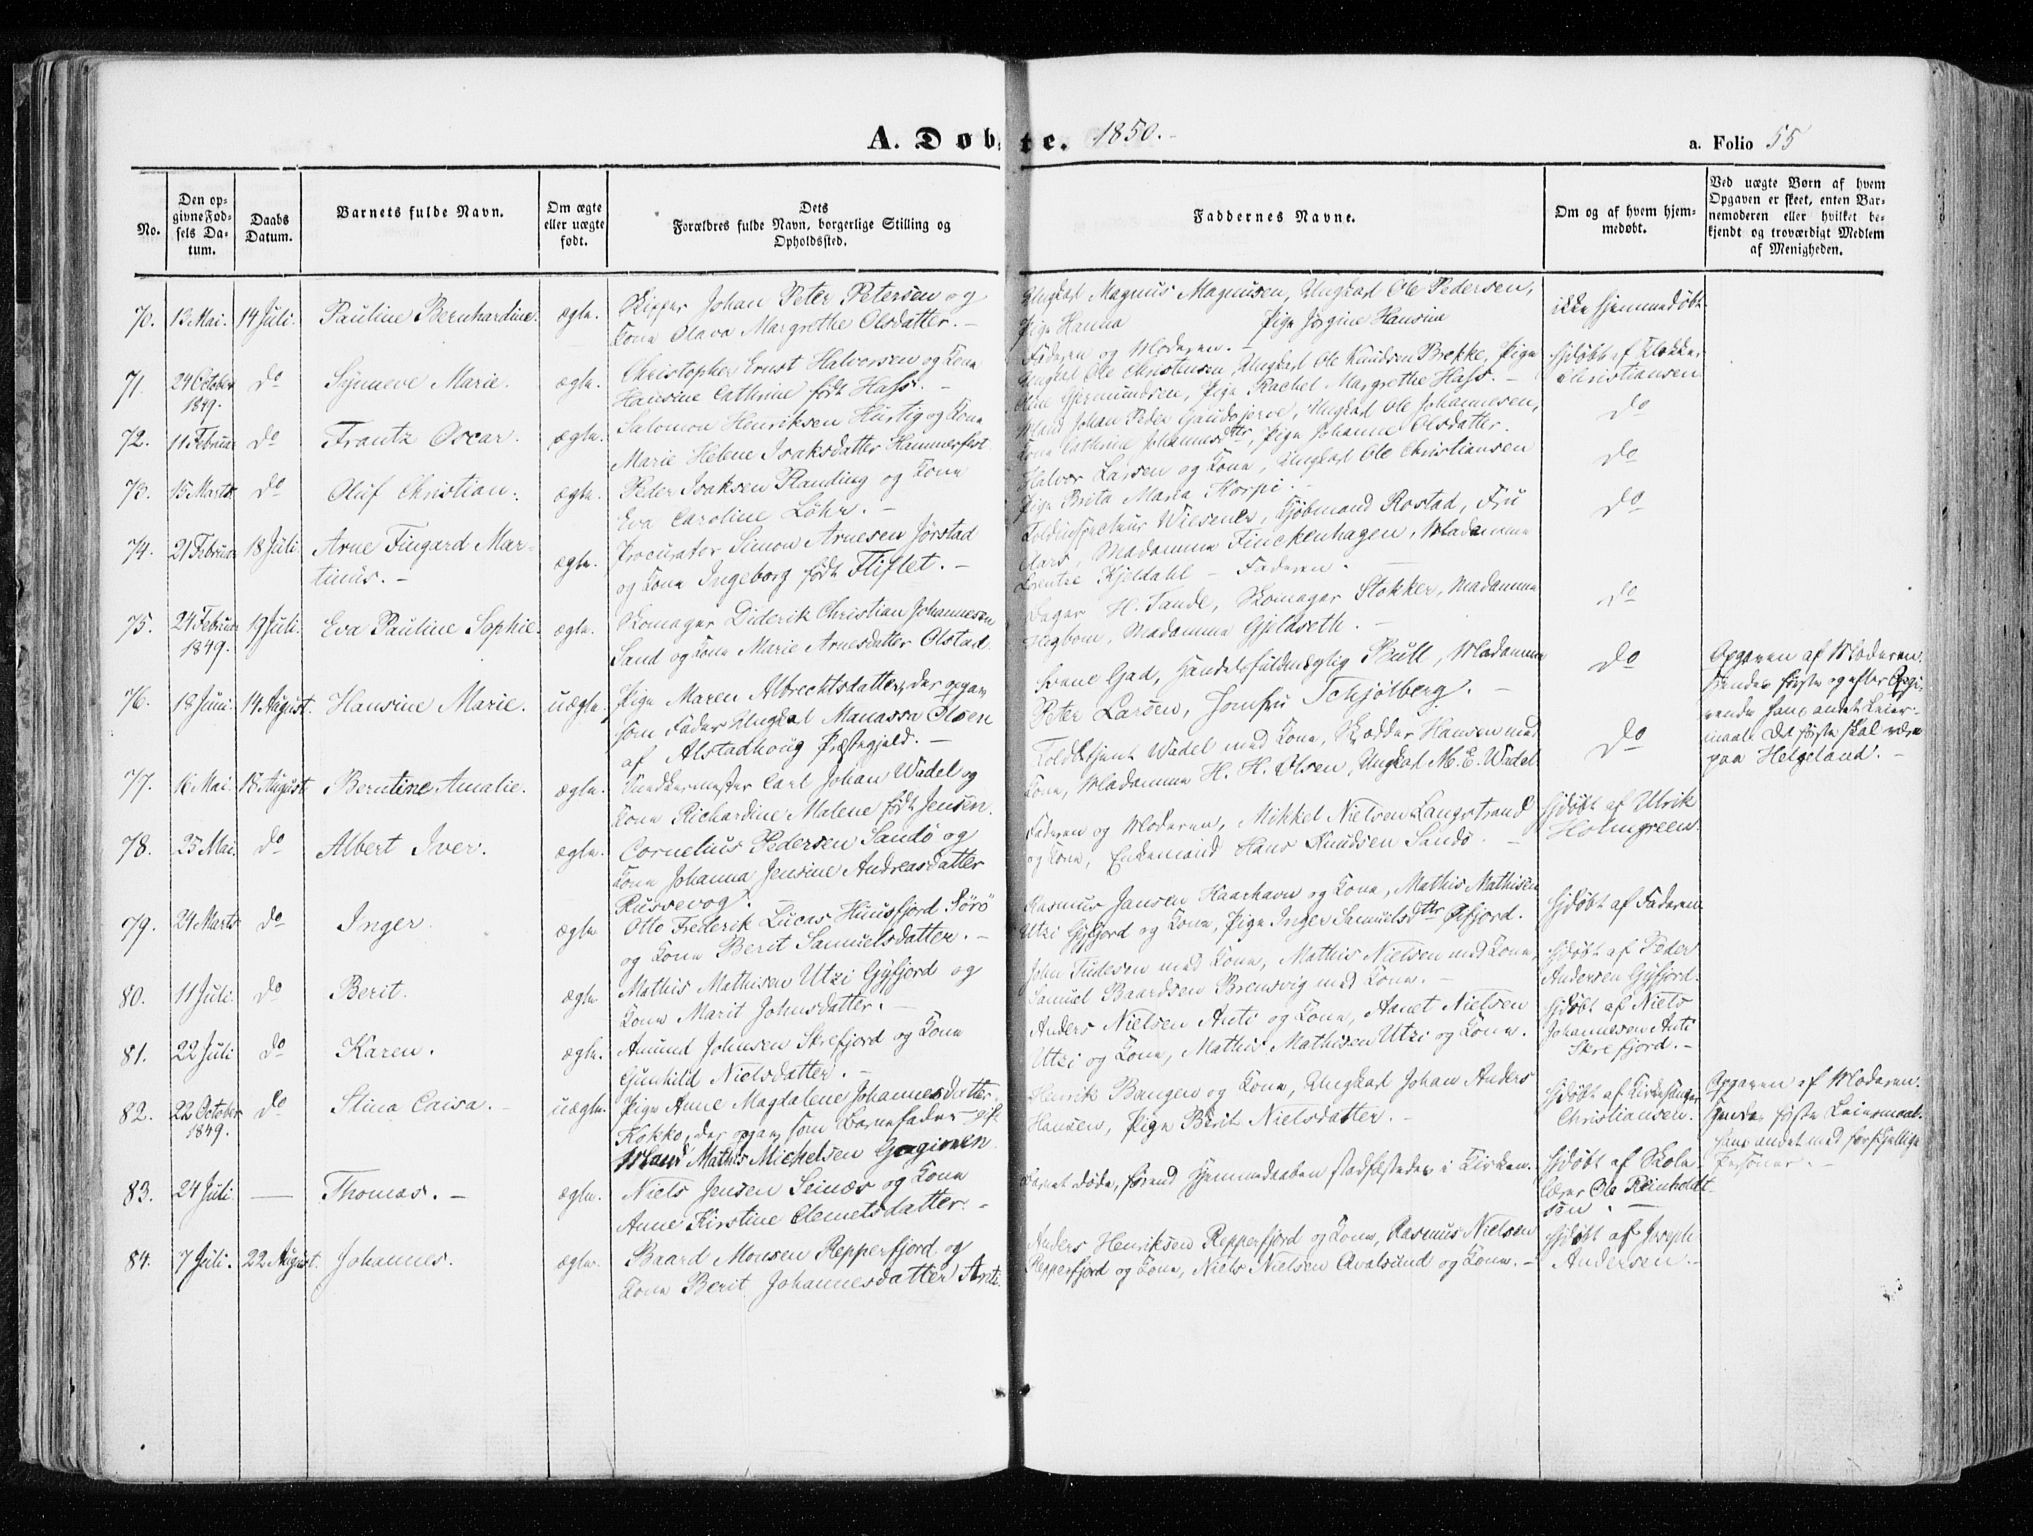 A. Døbte. 1850.
a. Folio 55
No.
Den opgivne Fødsels Datum.
Daabs Datum.
Barnets fulde Navn.
Om ægte eller uægte født.
Dets Forældres fulde Navn, borgerlige Stilling og Opholdssted.
Faddernes Navne.
Om og af hvem hjemmedøbt.
Ved uægte Børn af hvem Opgaven er skeet, enten Barnemoderen eller hvilket bekjendt og troværdigt Medlem af Menigheden.
70. 13 Mai. 14 Juli. Pauline Bernhardine. ægte. Skipper Johan Peter Petersen og
Kone Olava Margrethe Olsdatter. -
Ungkarl Magnus Magnusen, Ungkarl Ole Pedersen,
Pige Hanna Pige Jørgine Hansine
Faderen og Moderen. -
ikke hjemmedøbt.
71. 24 October 1849. do Synneve Marie. ægte. Christopher Ernst Halvorsen og Kone
Hansine Cathrine født Hass. -
Ungkarl Ole Christensen, Ungkarl Ole Knudsen Brekke, Pige
Oline Gjermundsen, Pige Rachel Margrethe Hass. -
hjdøbt af Klokker
Christiansen
72. 11 Februar do Frantz Oscar. ægte. Salomon Henriksen Hurtig og Kone
Marie Helene Isaksdatter Hammerfest
Mand Johan Peder Gandojerve, Ungkarl Ole Johannesen,
Kone Cathrine Johannesdtr, Pige Johanne Olsdatter.
do
73. 15 Marts. do Oluf Christian. ægte. Peder Isaksen Planding og Kone
Eva Caroline Löhr. -
Halvor Larsen og Kone, Ungkarl Ole Christiansen
Pige Brita Maria Korpi. -
do
74. 21 Februar 18 Juli. Arne Fingard Mar-
tinus. -
ægte. Procurator Simon Arnesen Jørstad
og Kone Ingeborg født Fliflet. -
Toldinspecteur Wiesener, Kjøbmand Rostad, Fru
Aars, Madamme Finckenhagen, Madamme
Lorentze Kjeldahl - Faderen. -
do
75. 24 Februar 1849. 19 Juli. Eva Pauline Sophie. ægte. Skomager Diderik Christian Johannesen
Sand og Kone Marie Arnesdatter Olstad.
Bager H. Tande, Skomager Stokker, Madamme
Hegbom, Madamme Gjelseth. -
do
76. 18 Juni. 14 August. Hansine Marie. uægte. Pige Maren Albrechtsdatter, der opgav
som Fader Ungkarl Manassa Olsen
af Alstadhoug Præstegjeld. -
Svane Gad, Handelsfuldmægtig Bull, Madamme
Peter Larsen, Jomfru Tchjølberg. -
do
Opgaven af Moderen.
hendes første og efter Opgi-
vende hans andet Leier-
maal. Det første skal være
paa Helgeland. -
77. 16 Mai. 15 August. Berntine Amalie. ægte. Snedkermester Carl Johan Wadel og
Kone Richardine Malene født Jensen.
Toldbetjent Wadel med Kone, Skrædder Hansen med
Kone, Madamme H. H. Olsen, Ungkarl M. E. Wadel
do
78. 25 Mai. do Albert Iver. ægte. Cornelius Pedersen Sandö og
Kone Johanna Jensine Andreasdatter
Russevog.
Faderen og Moderen, Mikkel Nielsen Langstrand
og Kone, Enkemand Hans Knudsen Sandö. -
hjdøbt af Ulrik
Holmgreen.
79. 24 Marts do Inger. ægte. Otto Frederik Lucas Huusfjord Sörö
og Kone Berit Samuelsdatter. -
Rasmus Jansen Haarhavn og Kone, Mathis Mathisen
Utzi Gyfjord og Kone, Pige Inger Samuelsdtr Øfjord.
hjdøbt af Faderen
80. 11 Juli. do Berit. ægte. Mathis Mathisen Utzi Gyfjord og
Kone Marit Johnsdatter. -
John Tudesen med Kone, Mathis Nielsen med Kone,
Samuel Baardsen Bremsvig med Kone. -
hjdøbt af Peder
Andersen Gyfjord.
81. 22 Juli do Karen. ægte. Amund Johnsen Skrefjord og Kone
Gunhild Nielsdatter. -
Anders Nielsen Anti og Kone, Aanet Nielsen
Utzi og Kone, Mathis Mathisen Utzi og Kone.
hjdøbt af Niels
Johannesen Anti
Skrefjord. -
82. 22 October 1849. do Stina Caisa. - uægte. Pige Anne Magdalene Johannesdatter
Kokko, der opgav som Barnefader gift
Mand Mathis Michelsen Gaginen.
Henrik Bangen og Kone, Ungkarl Johan Anders
Hansen, Pige Berit Nielsdatter. -
hjdøbt af Kirkesanger
Christiansen.
Opgaven af Moderen.
hendes første Leiermaal.
hans andet med forskjellige
Personer. -
83. 24 Juli. — Thomas. - ægte. Niels Jensen Seinæs og Kone
Anne Kirstine Clemetsdatter. -
Barnet døde, førend Hjemmedaaben stadfæstedes i Kirken.
hjdøbt af Skole-
lærer Ole Reinholdt-
sen. -
84. 7 Juli. 22 August. Johannes. ægte. Baard Monsen Repperfjord og
Kone Berit Johannesdatter Anti.
Anders Henriksen Repperfjord og Kone, Rasmus Nielsen
Repperfjord og Kone, Niels Nielsen Qvalsund og Kone. -
hjdøbt af Joseph
Andersen. -